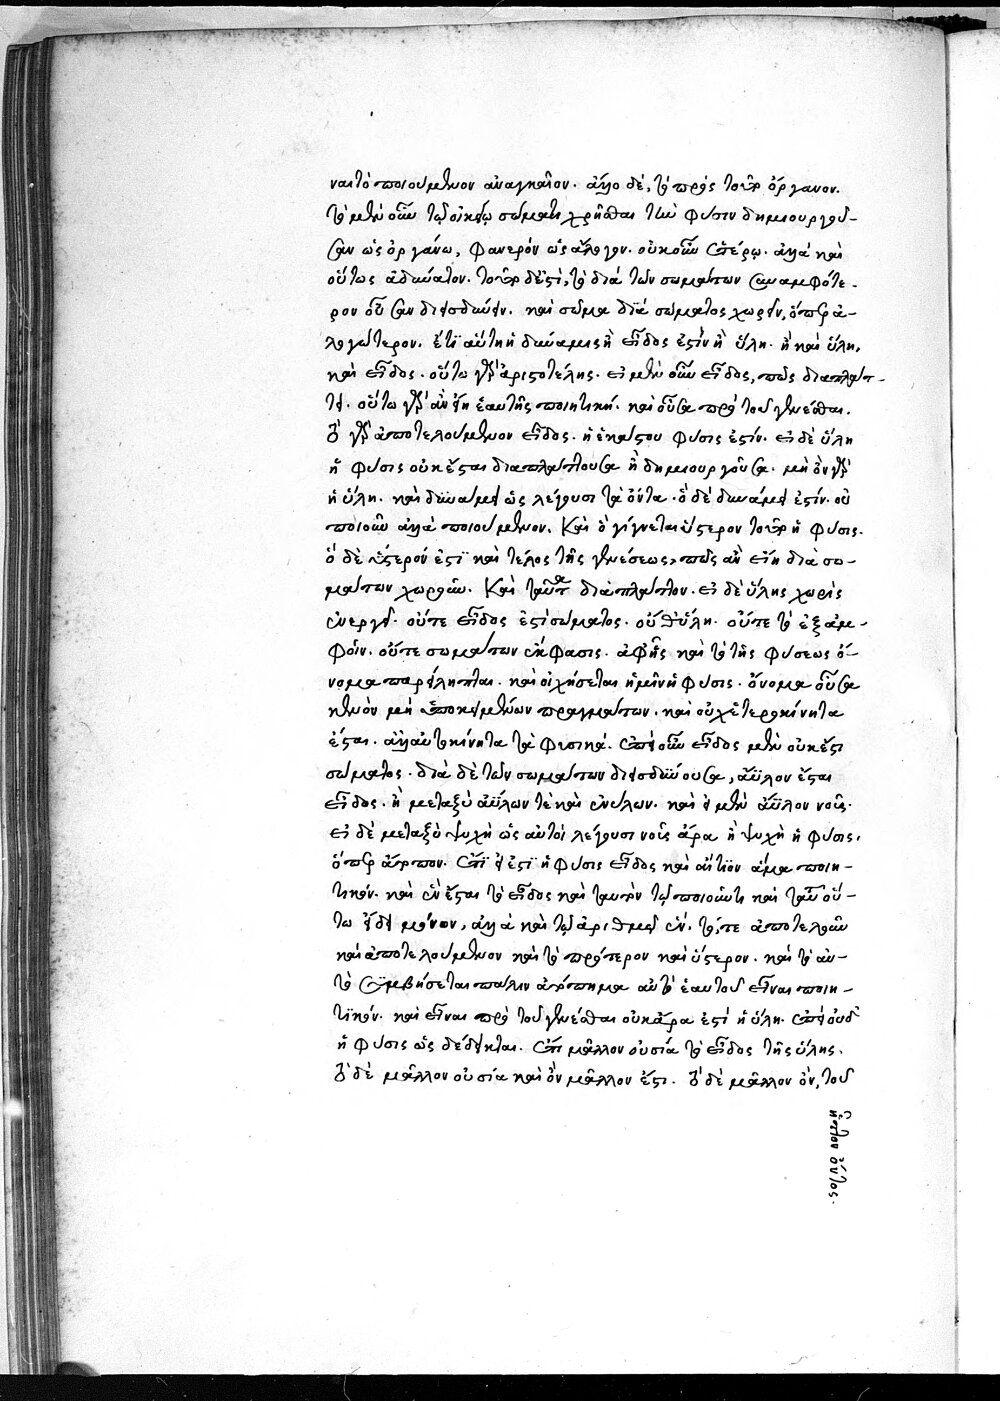 ναι τὸ ποιούμενον ἀναγκαῖον. ἄλλο δὲ, τὸ πρὸς τοῦτο ὄργανον.
τὸ μὲν οὖν τῷ οἰκείῳ σώματι χρῆσθαι τὴν φύσιν δημιουργοῦ-
σαν ὡς ὀργάνῳ, φανερὸν ὡς ἄλογον. οὐκοῦν ἑτέρῳ. ἀλλὰ καὶ
οὕτως ἀδύνατον. τοῦτο δέ ἐστι, τὸ διὰ τῶν σωμάτων συναμφότε-
ρον οὖσαν διϊοδεύειν. καὶ σῶμα διὰ σώματος χωρεῖν, ὅπερ ἀ-
λογώτερον. ἔτι αὕτη ἡ δύναμις ἢ εἶδος ἐστὶν ἢ ὕλη. ἢ καὶ ὕλη,
καὶ εἶδος. οὕτω γὰρ ἀριστοτέλης. εἰ μὲν οὖν εἶδος, πῶς διαπλάτ-
τει. οὕτω γὰρ ἂν εἴη ἑαυτῆς ποιητική. καὶ οὖσα πρὸ τοῦ γενέσθαι.
τὸ γὰρ ἀποτελούμενον εἶδος. ἡ ἑκάστου φύσις ἐστίν. εἰ δὲ ὕλη
ἡ φύσις οὐκ ἔσται διαπλάττουσα ἢ δημιουργοῦσα. μὴ ὂν γὰρ
ἡ ὕλη. καὶ δυνάμει ὡς λέγουσι τὰ ὄντα. ὃ δὲ δυνάμει ἐστίν. οὐ
ποιοῦν ἀλλὰ ποιούμενον. Καὶ ὃ γίγνεται ὕστερον τοῦτο ἡ φύσις.
ὃ δὲ ὕστερόν ἐστι καὶ τέλος τῆς γενέσεως, πῶς ἂν εἴη διὰ σω-
μάτων χωροῦν. Καὶ ταῦτα διαπλάττον. εἰ δὲ ὕλης χωρὶς
ἐνεργεῖ. οὔτε εἶδος ἐστὶ σώματος. οὔθ' ὕλη. οὔτε τὸ ἐξ ἀμ-
φοῖν. οὔτε σωμάτων ἔκφασις. ἀφ' ἧς καὶ τὸ τῆς φύσεως ὄ-
νομα παρείληπται. καὶ οἰχήσεται ἡμῖν ἡ φύσις. ὄνομα οὖσα
κενὸν μὴ ὑποκειμένων πραγμάτων. καὶ οὐχ ἑτεροκίνητα
ἔσται. ἀλλ' αὐτοκίνητα τὰ φυσικά. ἐπεὶ οὖν εἶδος μὲν οὐκ ἔστι
σώματος. διὰ δὲ τῶν σωμάτων διϊοδεύουσα, ἄϋλον ἔσται
εἶδος. ἢ μεταξὺ ἀΰλων τε καὶ ἐνύλων. καὶ εἰ μὲν ἄϋλον νοῦς.
εἰ δὲ μεταξὺ ψυχὴ ὡς αὐτοὶ λέγουσι νοῦς ἄρα ἢ ψυχὴ ἡ φύσις.
ὅπερ ἄτοπον. ἔτι εἰ ἐστὶ ἡ φύσις εἶδος καὶ αἴτιον ἅμα ποιη-
τικόν. καὶ ἓν ἔσται τὸ εἶδος καὶ ταυτὸν τῷ ποιοῦντι καὶ ταῦτα οὔ-
τω εἴδει μόνον, ἀλλὰ καὶ τῷ ἀριθμῷ ἕν. τό, τε ἀποτελοῦν
καὶ ἀποτελούμενον καὶ τὸ πρότερον καὶ ὕστερον. καὶ τὸ αὐ-
τὸ συμβήσεται πάλιν ἀτόπημα αὐτὸ ἑαυτοῦ εἶναι ποιη-
τικόν. καὶ εἶναι πρὸ τοῦ γενέσθαι οὐκ ἄρα ἐστὶ ἡ ὕλη. ἐπεὶ οὐδὲ
ἡ φύσις ὡς δέδεικται. ἔτι μᾶλλον οὐσία τὸ εἶδος τῆς ὕλης.
τὸ δὲ μᾶλλον οὐσία καὶ ὂν μᾶλλον ἔστι. τὸ δὲ μᾶλλον ὂν, τοῦ
ἧττον ὄντος.